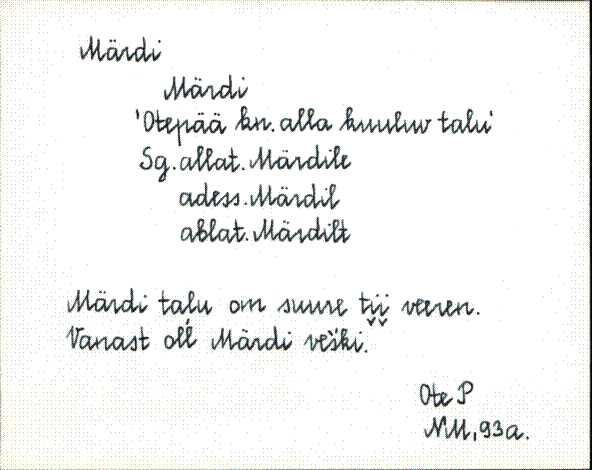 Märdi
Märdi
'Otepää kn. alla kuuluv talu'
Sg. allat. Märdile
adess. Märdil
ablat. Märdilt
Märdi talu om suure tii̬i̬ veeren.
Vanast oĺl Märdi veški.
Ote P
NM, 93a.